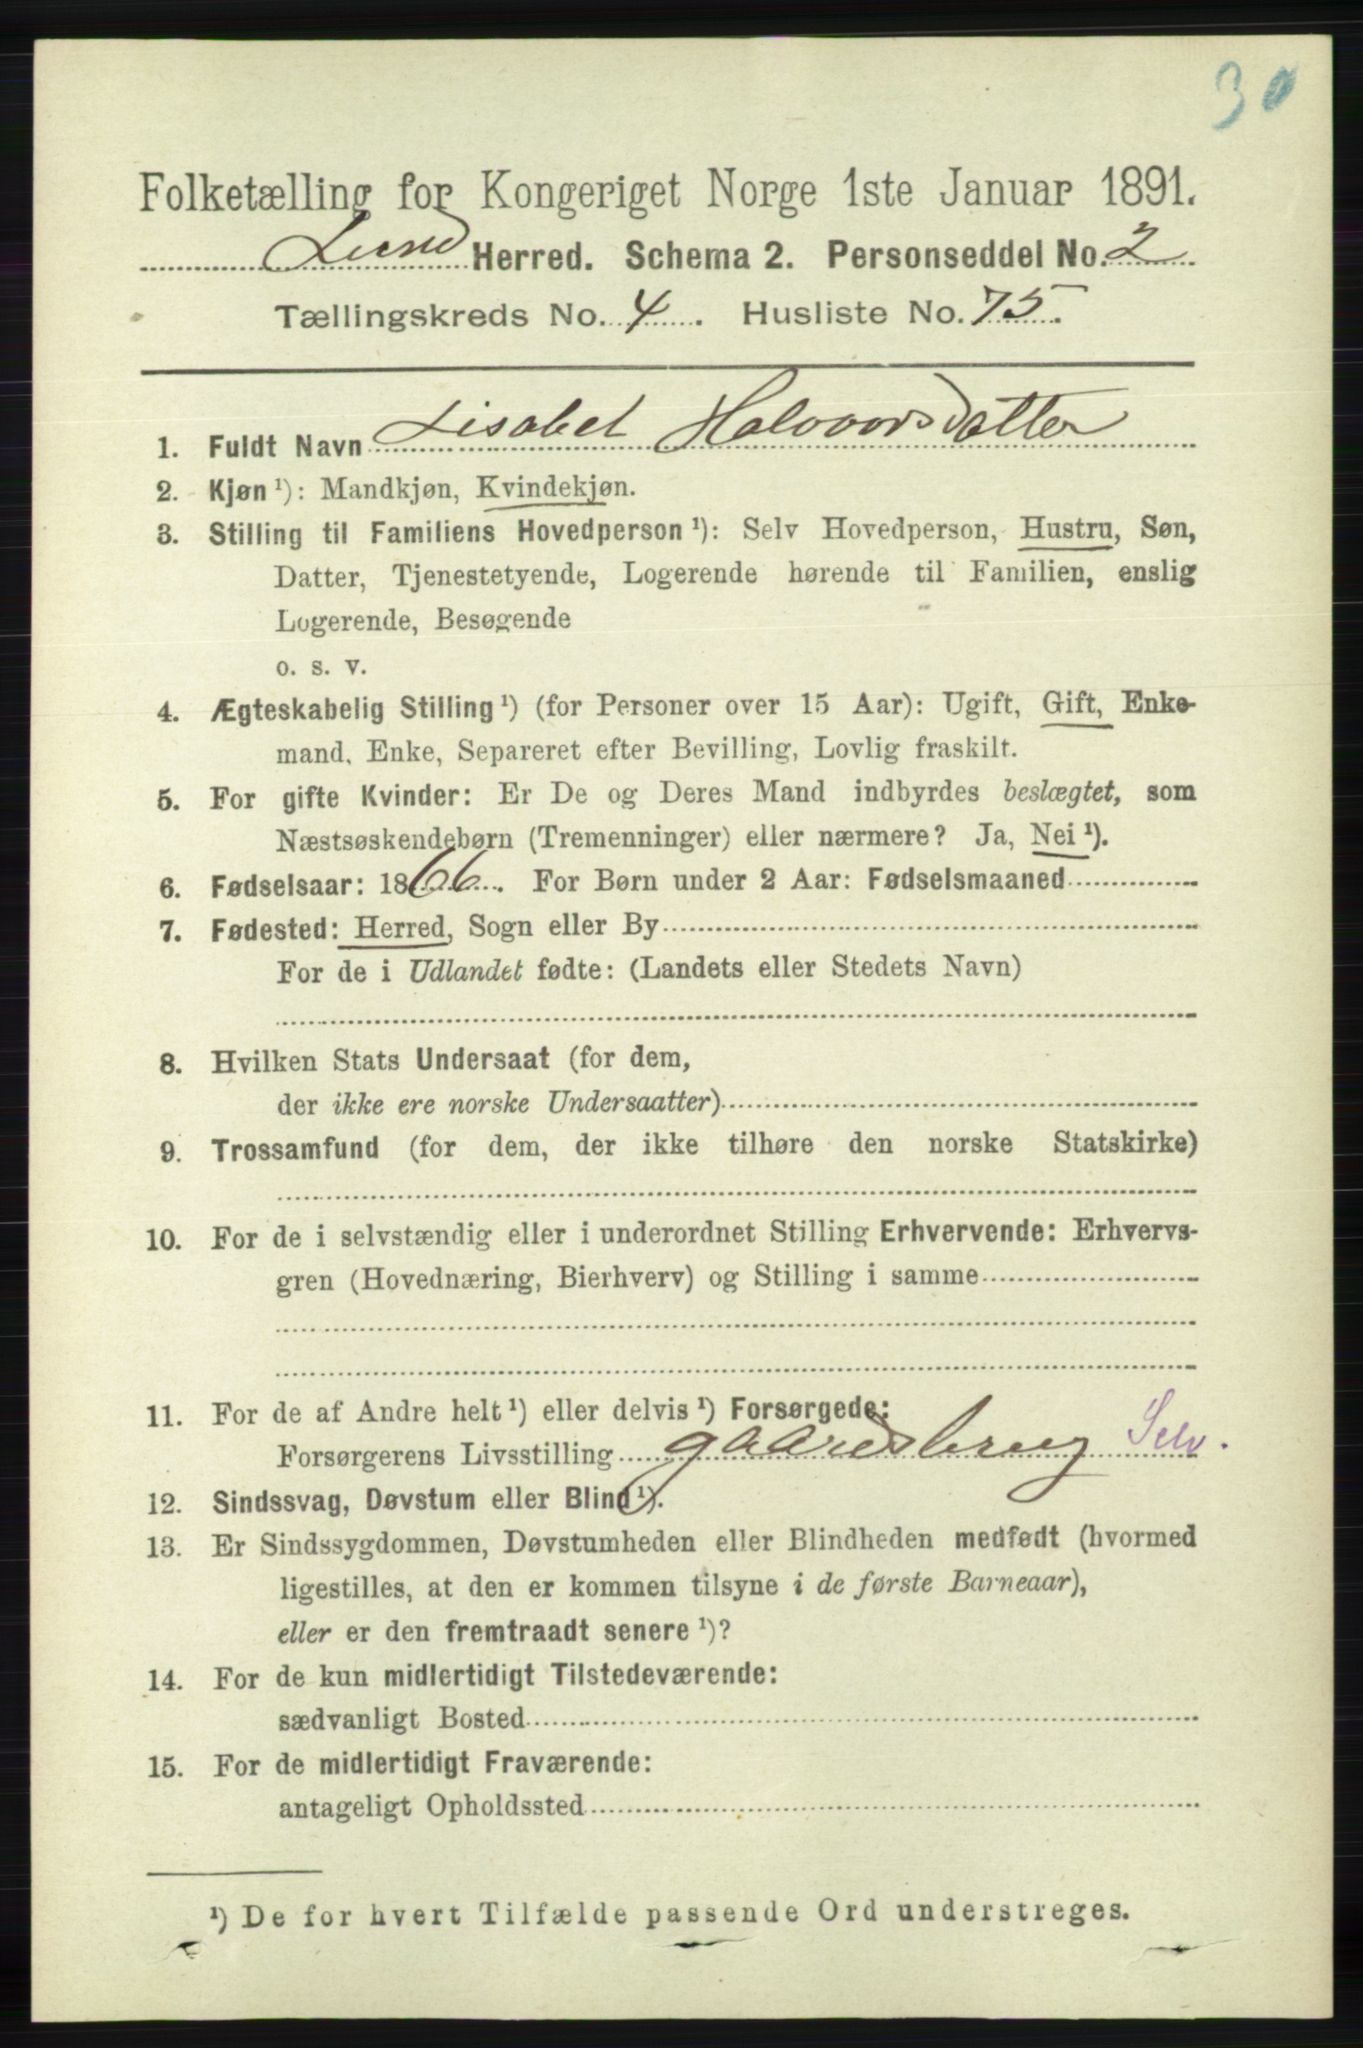 30
Folketælling for Kongeriget Norge 1ste Januar 1891.
Lund Herred. Schema 2. Personseddel No. 2
Tællingskreds No. 4. Husliste No. 75.
1. Fuldt Navn Lisabet Halvoorsdatter
2. Kjøn ¹): Mandkjøn, Kvindekjøn.
3. Stilling til Familiens Hovedperson ¹): Selv Hovedperson, Hustru, Søn,
Datter, Tjenestetyende, Logerende hørende til Familien, enslig
Logerende, Besøgende
o. s. v.
4. Ægteskabelig Stilling ¹) (for Personer over 15 Aar): Ugift, Gift, Enke-
mand, Enke, Separeret efter Bevilling, Lovlig fraskilt.
5. For gifte Kvinder: Er De og Deres Mand indbyrdes beslægtet, som
Næstsøskendebørn (Tremenninger) eller nærmere? Ja, Nei ¹).
6. Fødselsaar: 1866. For Børn under 2 Aar: Fødselsmaaned
7. Fødested: Herred, Sogn eller By
For de i Udlandet fødte: (Landets eller Stedets Navn)
8. Hvilken Stats Undersaat (for dem,
der ikke ere norske Undersaatter)
9. Trossamfund (for dem, der ikke tilhøre den norske Statskirke)
10. For de i selvstændig eller i underordnet Stilling Erhvervende: Erhvervs-
gren (Hovednæring, Bierhverv) og Stilling i samme
11. For de af Andre helt ¹) eller delvis ¹) Forsørgede:
Forsørgerens Livsstilling gaardsbrug Selv.
12. Sindssvag, Døvstum eller Blind ¹).
13. Er Sindssygdommen, Døvstumheden eller Blindheden medfødt (hvormed
ligestilles, at den er kommen tilsyne i de første Barneaar),
eller er den fremtraadt senere ¹)?
14. For de kun midlertidigt Tilstedeværende:
sædvanligt Bosted
15. For de midlertidigt Fraværende:
antageligt Opholdssted
¹) De for hvert Tilfælde passende Ord understreges.